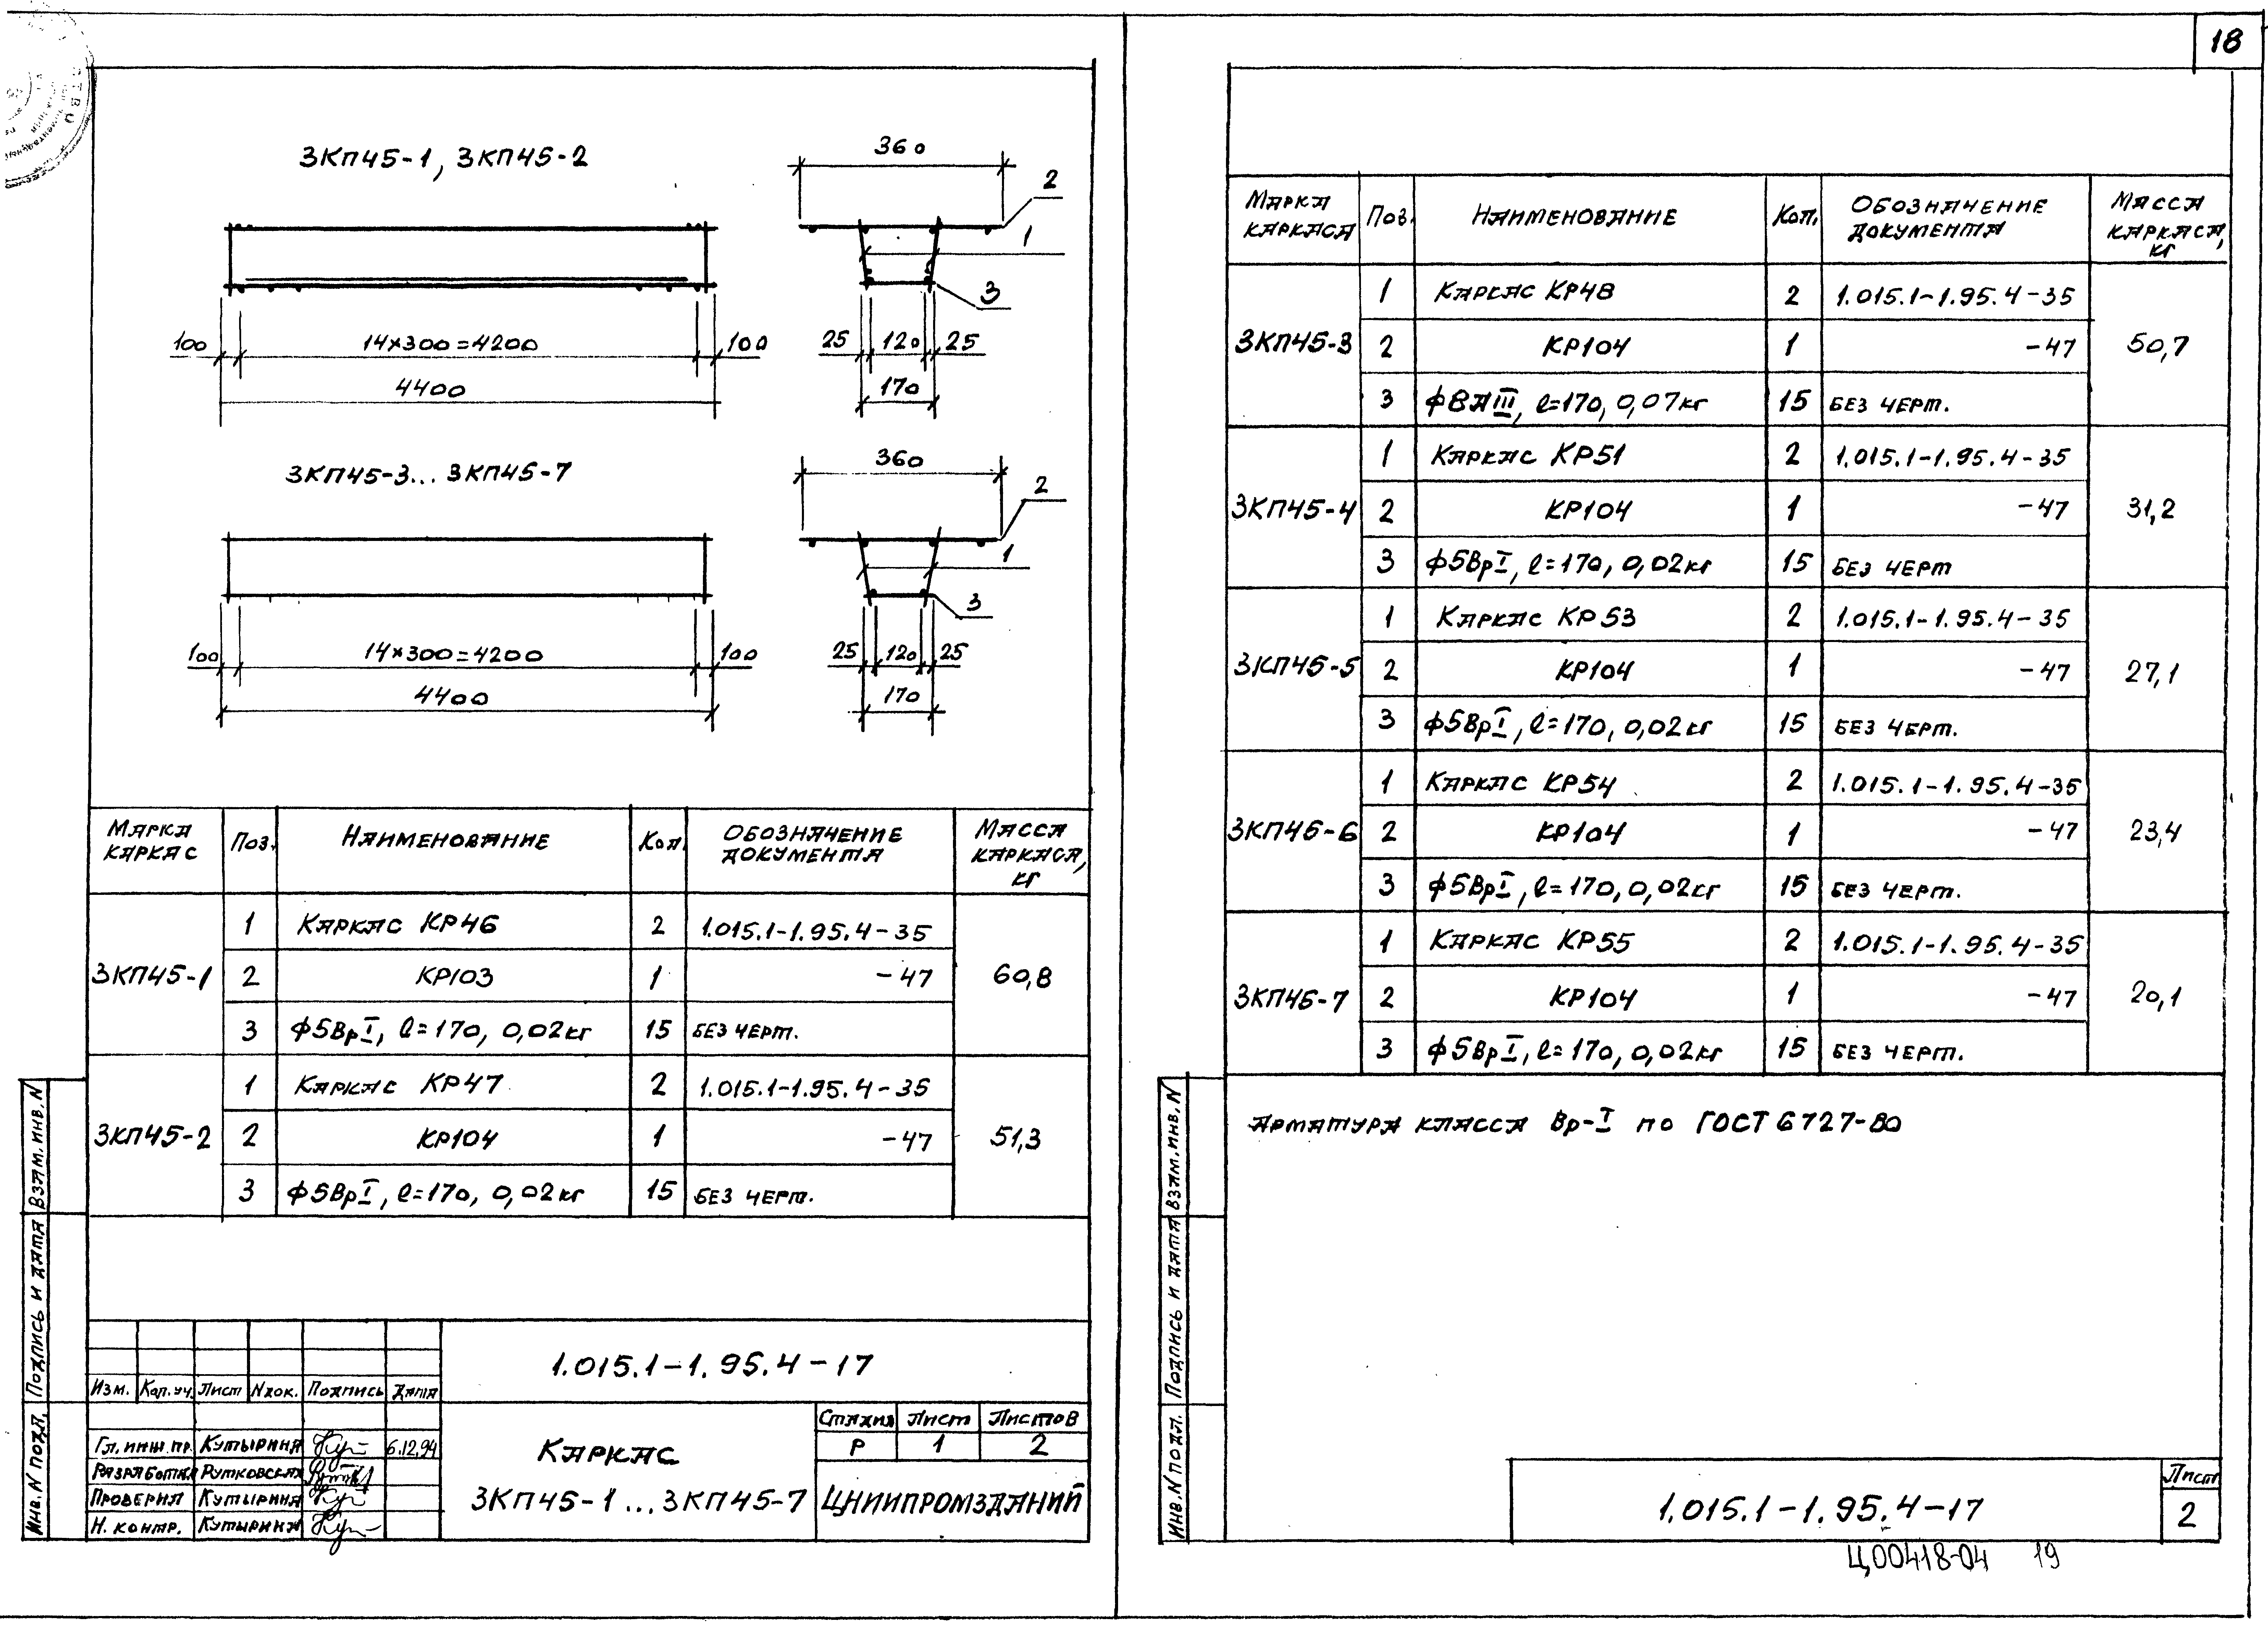 18
3КП45-1, 3КП45-2
360
2
1
3
100 14×300=4200 100
4400
25 120 25
170
3КП45-3... 3КП45-7
360
2
1
3
100 14×300=4200 100
4400
25 120 25
170
Марка каркас Поз. Наименование Кол. Обозначение документа Масса каркаса, кг
3КП45-1 60,8
1 Каркас КР46 2 1.015.1-1.95.4-35
2 КР103 1 -47
3 ф5ВрI, l=170, 0,02кг 15 без черт.
3КП45-2 51,3
1 Каркас КР47 2 1.015.1-1.95.4-35
2 КР104 1 -47
3 ф5ВрI, l=170, 0,02кг 15 без черт.
1.015.1-1.95.4-17
Изм. Кол.уч. Лист Nдок. Подпись Дата
Гл.инж.пр. Кутырина 6.12.94
Разработал Рутковская
Проверил Кутырина
Н. контр. Кутырина
Каркас
3КП45-1...3КП45-7
Стадия Лист Листов
Р 1 2
ЦНИИПРОМЗДАНИЙ
Инв. N подл. Подпись и дата Взам.инв.N
Марка каркаса Поз. Наименование Кол. Обозначение документа Масса каркаса, кг
3КП45-3 50,7
1 Каркас КР48 2 1.015.1-1.95.4-35
2 КР104 1 -47
3 ф8АIII, l=170, 0,07кг 15 без черт.
3КП45-4 31,2
1 Каркас КР51 2 1.015.1-1.95.4-35
2 КР104 1 -47
3 ф5ВрI, l=170, 0,02кг 15 без черт
3КП45-5 27,1
1 Каркас КР53 2 1.015.1-1.95.4-35
2 КР104 1 -47
3 ф5ВрI, l=170, 0,02кг 15 без черт.
3КП45-6 23,4
1 Каркас КР54 2 1.015.1-1.95.4-35
2 КР104 1 -47
3 ф5ВрI, l=170, 0,02кг 15 без черт.
3КП45-7 20,1
1 Каркас КР55 2 1.015.1-1.95.4-35
2 КР104 1 -47
3 ф5ВрI, l=170, 0,02кг 15 без черт.
Арматура класса Вр-I по ГОСТ 6727-80
Инв. N подл. Подпись и дата Взам.инв.N
1.015.1-1.95.4-17
Лист
2
Ц00418-04 19